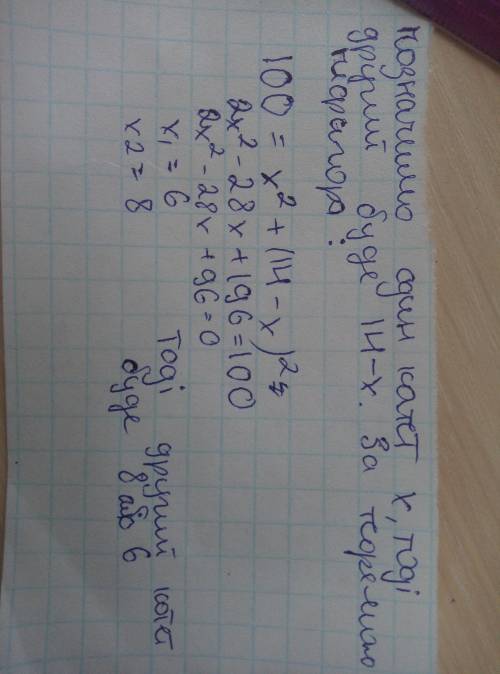 позначимо один катет x, тоді
другий буде 14-x. За теоремою
піфагора:
100 = x² + (14-x)²
2x² - 28x + 196 = 100
2x² - 28x + 96 = 0
x₁ = 6
x2 = 8
Тоді другий катет
буде 8 або 6